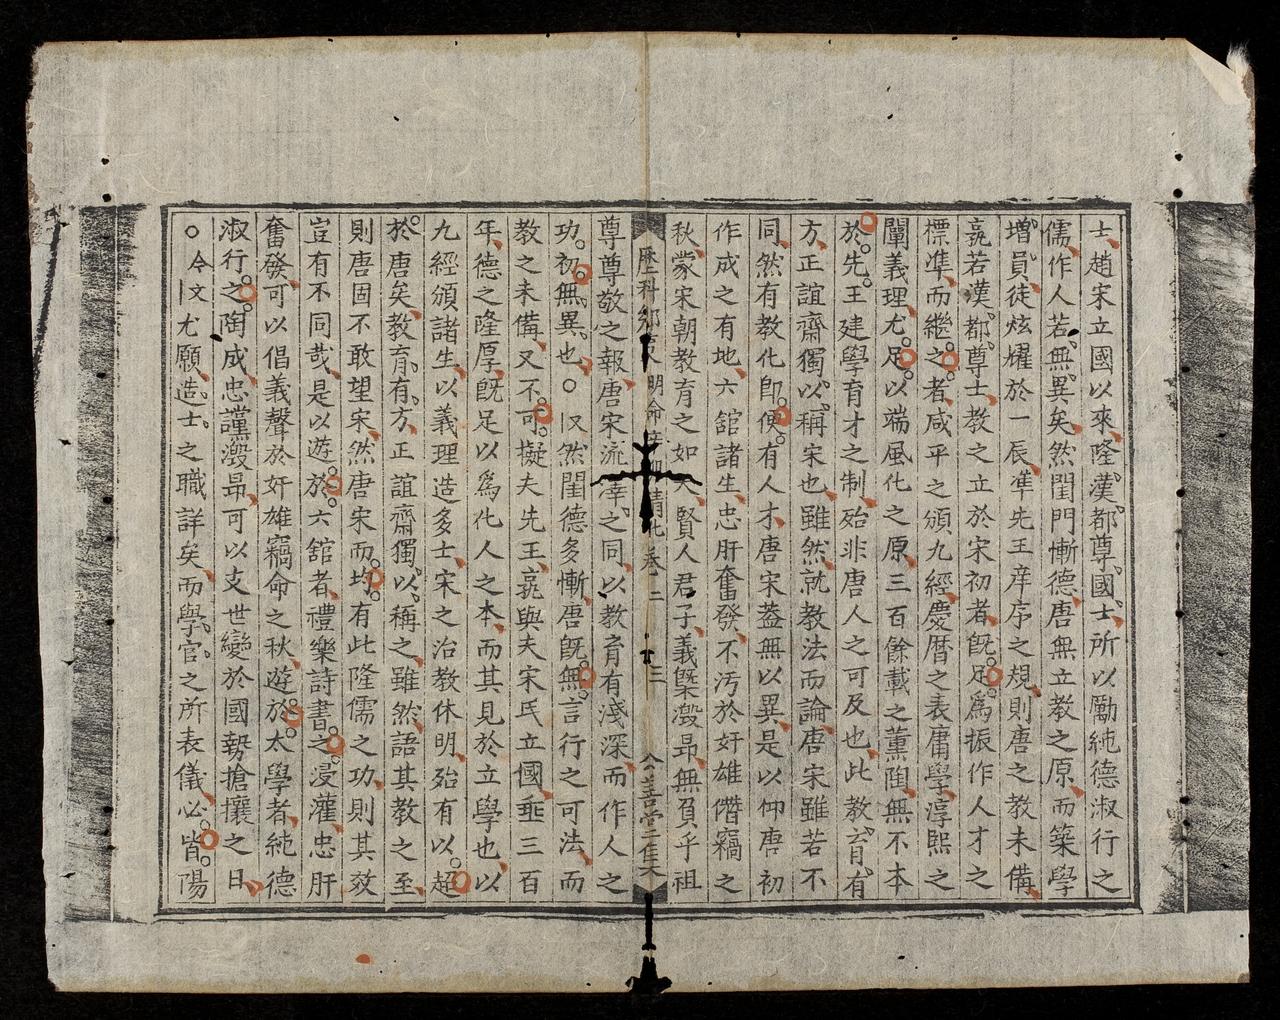 士趙宋立國以來隆漢都尊國士所以勵純德淑行之
儒作人若無異矣然閨門慚德唐無立教之原而築學
增員徒炫耀於一辰準先王庠序之規則唐之教未備
竟若漢都尊士教之立於宋初者既足為振作人才之
標準而繼之者咸平之頒九經慶曆之表庸學淳熙之
闡義理尤足以端風化之原三百餘載之薰陶無不本
於先王建學育才之制殆非唐人之可及也此教育有
方正誼齋獨以稱宋也雖然就教法而論唐宋雖若不
同然有教化即便有人才唐宋蓋無以異是以仰唐初
作成之有地六舘諸生忠肝奮發不污於奸雄僭竊之
秋蒙宋朝教育之如天賢人君子義槩激昂無負乎祖
歷科鄉 明命 精 卷二 三 公善堂
尊尊敬之報唐宋流 之同以教育有淺深而作人之
功初無異也○ 又然閨德多慚唐既無言行之可法而
教之未備又不可擬夫先王竟與夫宋氏立國垂三百
年德之隆厚既足以為化人之本而其見於立學也以
九經頒諸生以義理造多士宋之治教休明殆有以超
於唐矣教育有方正誼齋獨以稱之雖然語其教之至
則唐固不敢望宋然唐宋而均有此隆儒之功則其效
豈有不同哉是以遊於六舘者禮樂詩書之浸灌忠肝
奮發可以倡義聲於奸雄竊命之秋遊於太學者純德
淑行之陶成忠讜激昂可以支世變於國勢搶攘之日
○ 今文尤願造士之職詳矣而學官之所表儀必皆陽